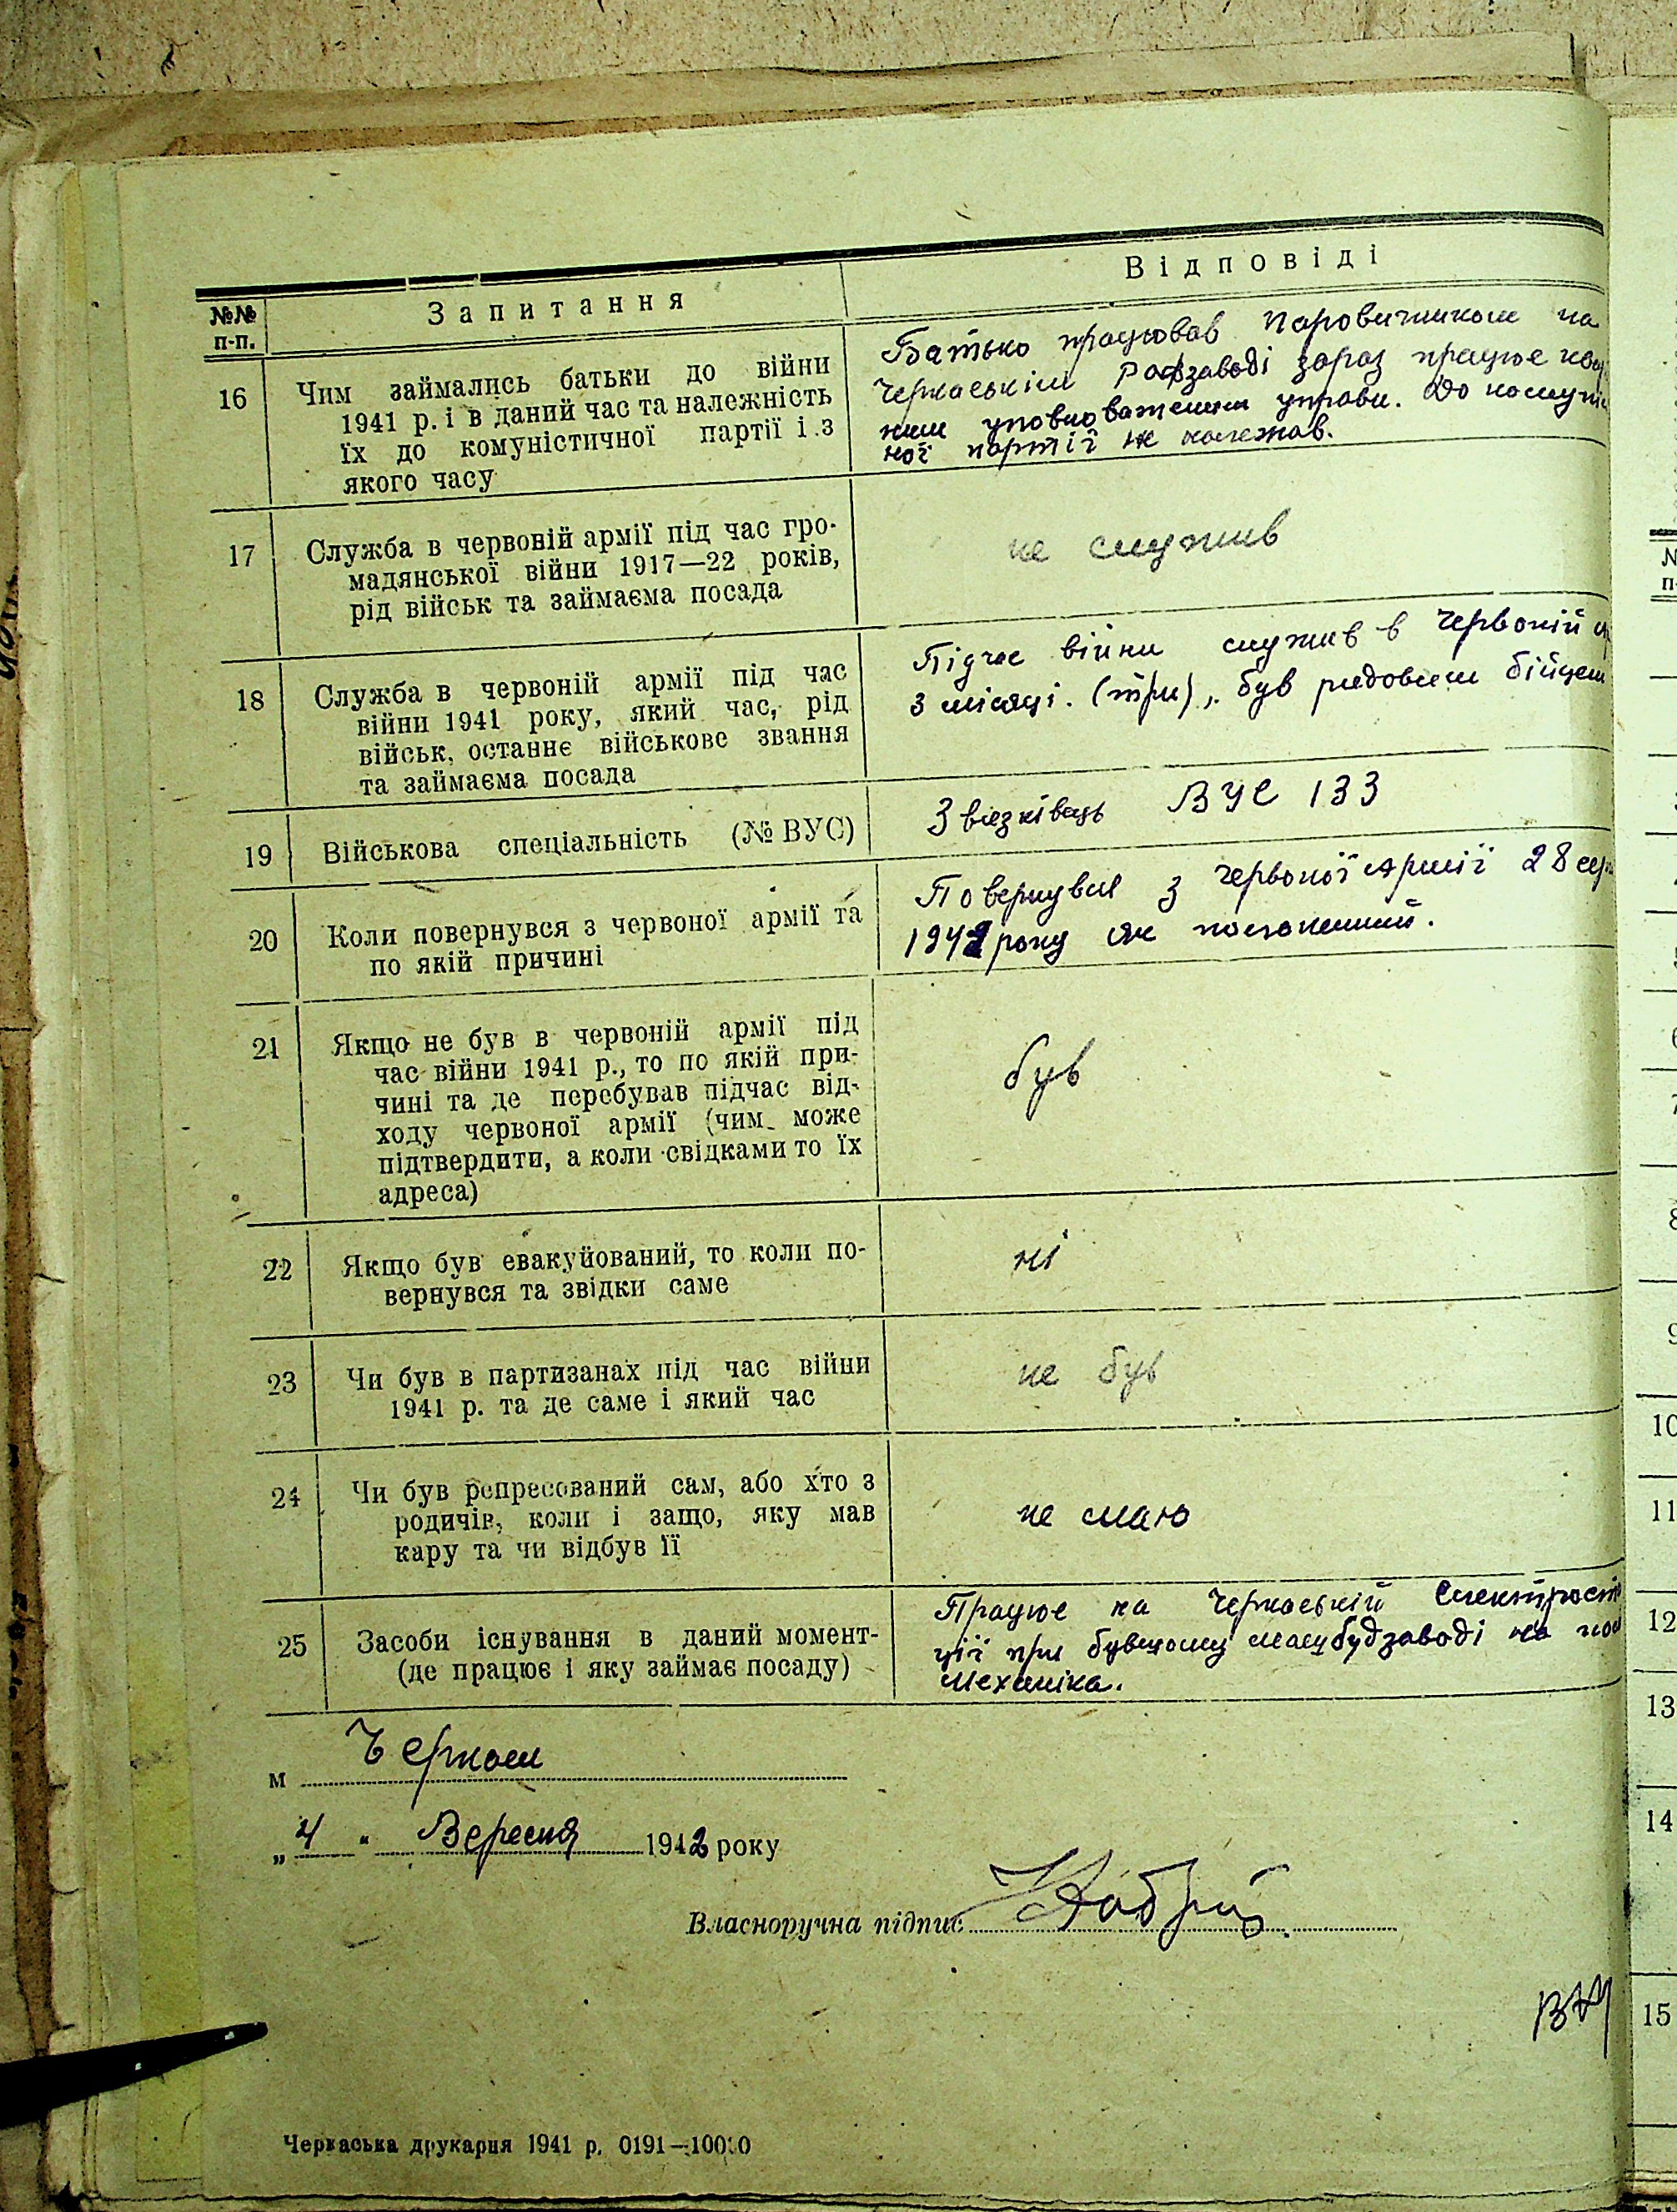 №№ п-п. Запитання Відповіді
16 Чим займались батьки до війни
1941 р. і в даний час та належність
їх до комуністичної партії і з
якого часу
Батько працював Паровичником на
Черкаськім Рафзаводі зараз працює
уповноваженим управи. До комуніс
ної партії не належав.
17 Служба в червоній армії під час гро-
мадянської війни 1917—22 років,
рід військ та займаєма посада
не служив
18 Служба в червоній армії під час
війни 1941 року, який час, рід
військ, останнє військове звання
та займаєма посада
Підчас війни служив в Червоній
3 місяці. (три), був рядовим бійцем
19 Військова спеціальність (№ ВУС)
Звязківець ВУС 133
20 Коли повернувся з червоної армії та
по якій причині
Повернувся з Червоної Армії 28
року як полонений.
21 Якщо не був в червоній армії під
час війни 1941 р., то по якій при-
чині та де перебував підчас від-
ходу червоної армії (чим може
підтвердити, а коли свідками то їх
адреса)
був
22 Якщо був евакуйований, то коли по-
вернувся та звідки саме
ні
23 Чи був в партизанах під час війни
1941 р. та де саме і який час
не був
24 Чи був репресований сам, або хто з
родичів, коли і защо, яку мав
кару та чи відбув її
не маю
25 Засоби існування в даний момент-
(де працює і яку займає посаду)
Працює на Черкаській Електрост
ції при бувшому машбудзаводі на
Механіка.
м Черкаси
„4" Вересня 1942 року
Власноручна підпис
Черкаська друкарня 1941 р. 0191—10000
№
п-
6
7
8
9
10
11
12
13
14
15